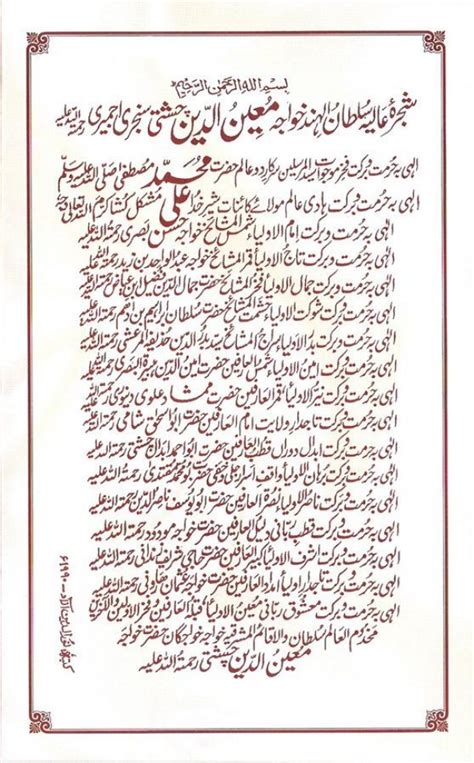 بسم اللہ الرحمٰن الرحیم
شجرۂ عالیہ سلطان الہند خواجہ معین الدین چشتی سنجری اجمیری رحمۃ اللہ علیہ
الٰہی بہ حرمت و برکت فخر موجودات سید المرسلین سرکار دو عالم حضرت محمد مصطفٰی صلی اللہ علیہ وسلم
الٰہی بہ حرمت و برکت ہادی عالم مولائے کائنات شیر خدا علی مشکل کشا کرم اللہ تعالیٰ وجہہ
الٰہی بہ حرمت و برکت امام الاولیاء شمس المشائخ خواجہ حسن بصری رحمۃ اللہ علیہ
الٰہی بہ حرمت و برکت تاج الاولیاء قمر المشائخ خواجہ عبد الواحد بن زید رحمۃ اللہ علیہ
الٰہی بہ حرمت و برکت جمال الاولیاء فخر المشائخ حضرت جمال الدین فضیل ابن عیاض رحمۃ اللہ علیہ
الٰہی بہ حرمت و برکت شوکت الاولیاء حشمت المشائخ حضرت سلطان ابراہیم بن ادہم رحمۃ اللہ علیہ
الٰہی بہ حرمت و برکت بدر الاولیاء سراج المشائخ سدید الدین حذیفہ المرعشی رحمۃ اللہ علیہ
الٰہی بہ حرمت و برکت امین الاولیاء حضرت امین الدین ہبیرۃ البصری رحمۃ اللہ علیہ
الٰہی بہ حرمت و برکت نیر الاولیاء قمر العارفین حضرت ممشاد علوی دینوری رحمۃ اللہ علیہ
الٰہی بہ حرمت و برکت تاجدار ولایت امام العارفین حضرت ابو اسحٰق شامی رحمۃ اللہ علیہ
الٰہی بہ حرمت و برکت ابدال دوراں قطب العارفین حضرت ابو احمد ابدال چشتی رحمۃ اللہ علیہ
الٰہی بہ حرمت و برکت برہان الاولیاء واقف اسرار حضرت ابو محمد رحمۃ اللہ علیہ
الٰہی بہ حرمت و برکت ناصر الاولیاء العارفین حضرت ابو یوسف ناصر الدین رحمۃ اللہ علیہ
الٰہی بہ حرمت و برکت قطب ربانی دلیل العارفین حضرت خواجہ مودود رحمۃ اللہ علیہ
الٰہی بہ حرمت و برکت اشرف الاولیاء کبیر العارفین حضرت حاجی شریف زندنی رحمۃ اللہ علیہ
الٰہی بہ حرمت و برکت تاجدار اولیاء العارفین حضرت خواجہ عثمان ہارونی رحمۃ اللہ علیہ
الٰہی بہ حرمت و برکت معشوق ربانی معین الاولیاء العارفین فخر الاولین والآخرین
مخدوم العالم سلطان خواجہ خواجگان حضرت خواجہ
معین الدین چشتی رحمۃ اللہ علیہ
۱۹۹۰ء